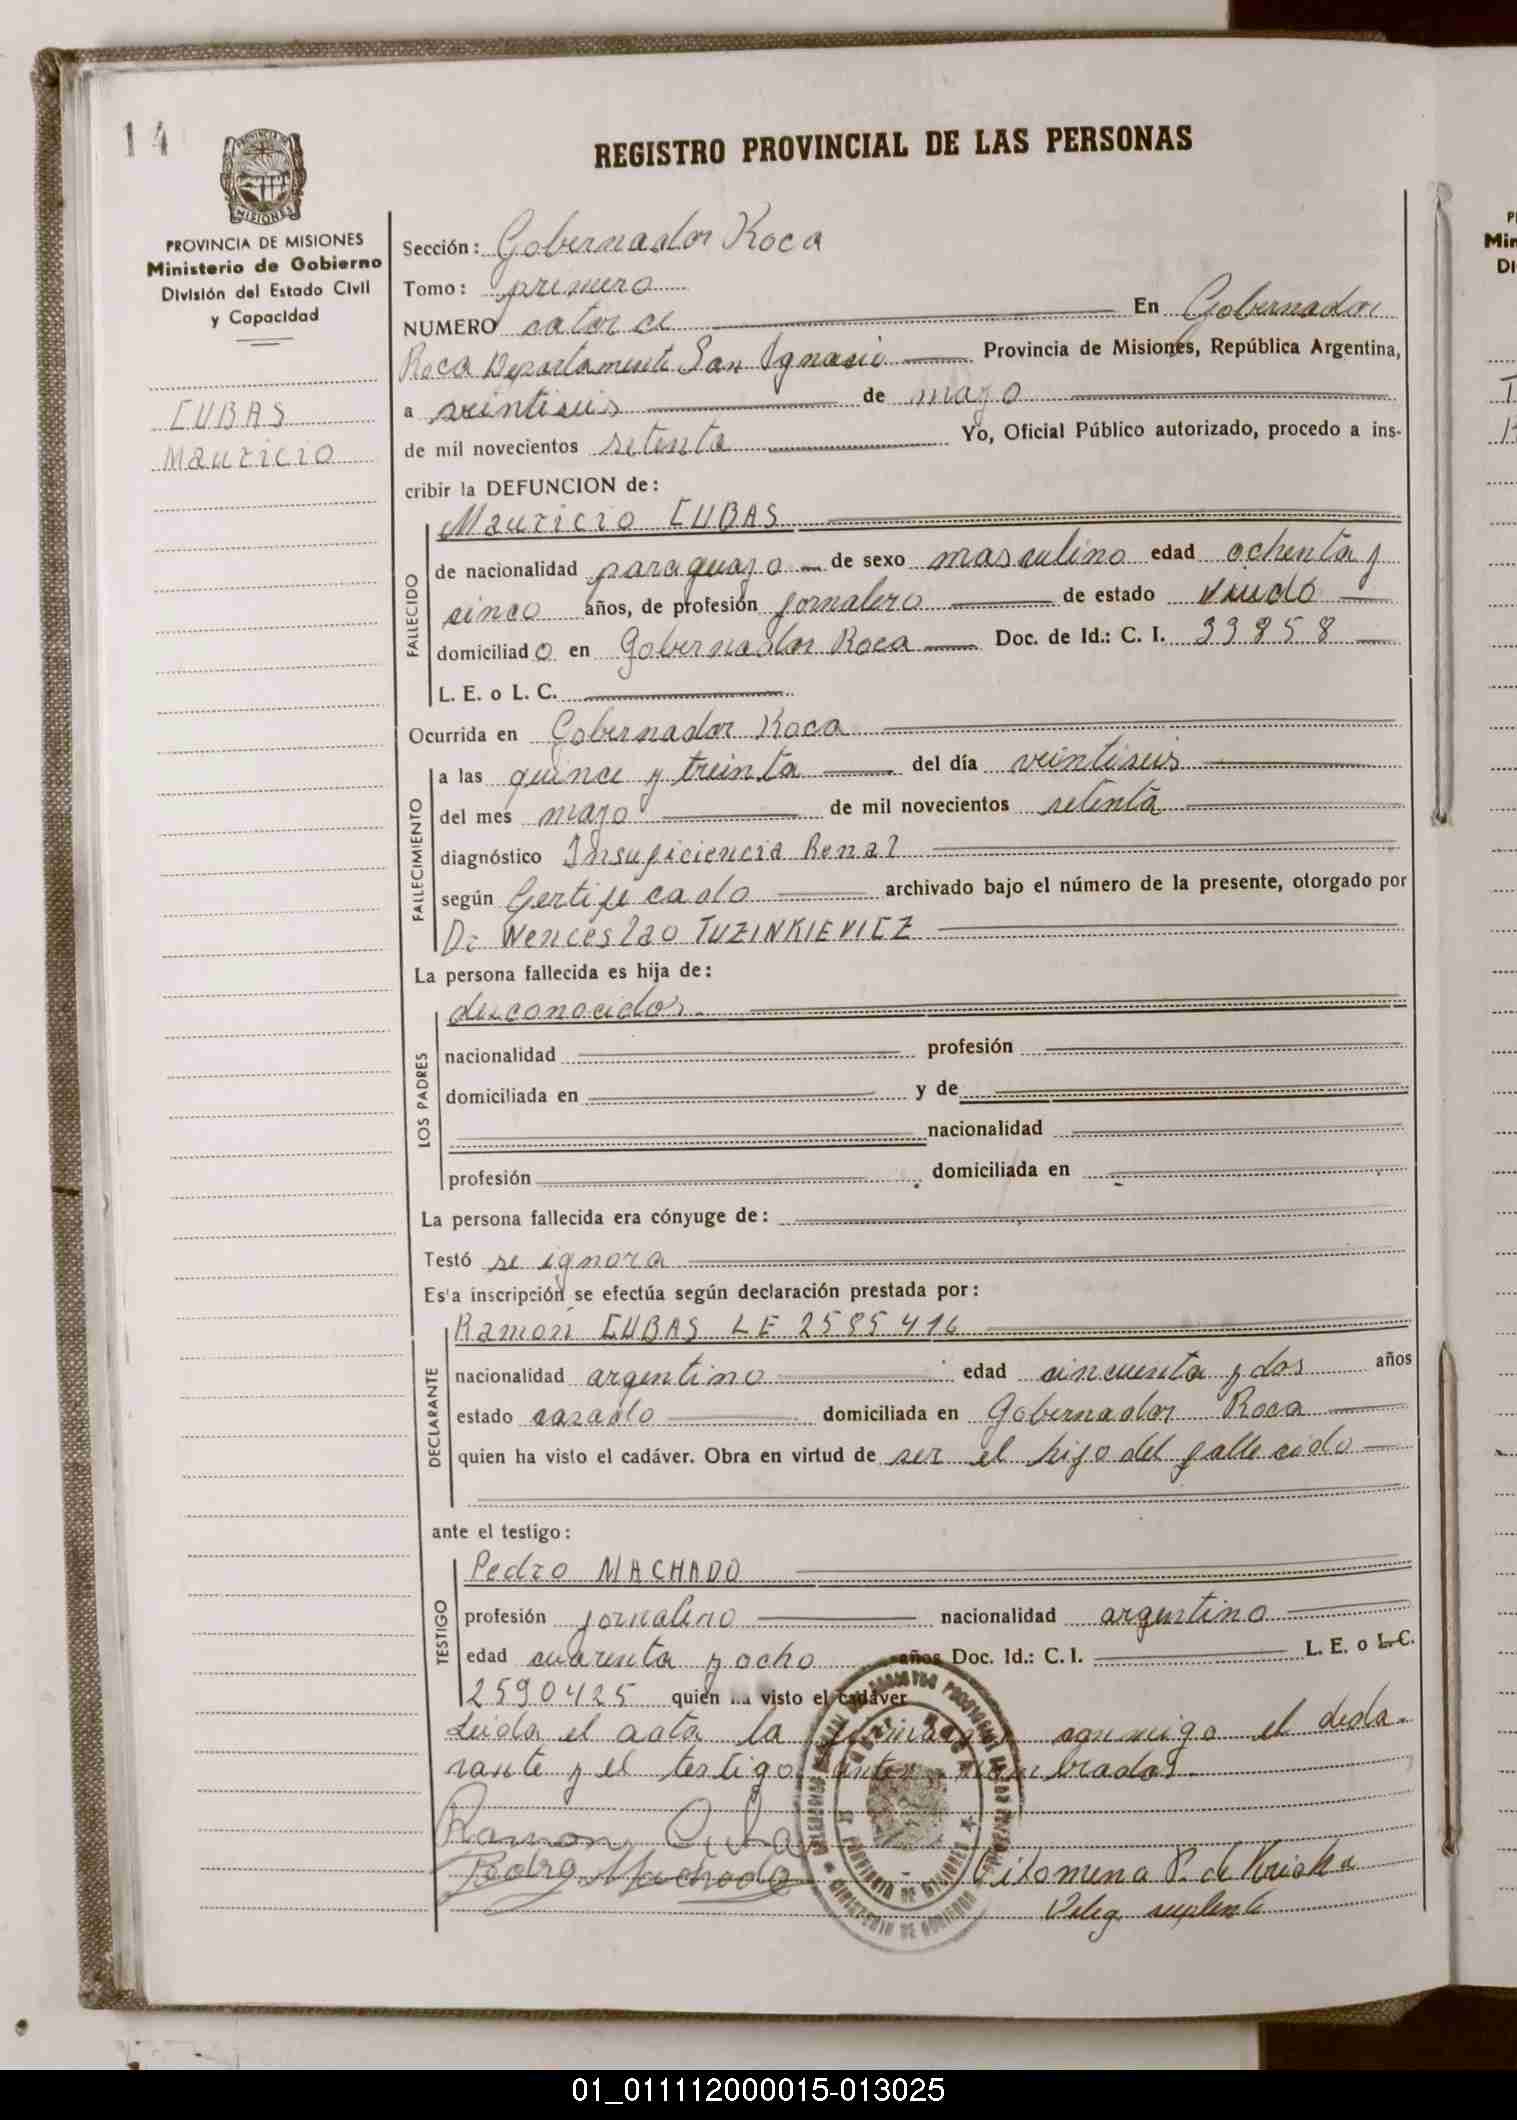 14
REGISTRO PROVINCIAL DE LAS PERSONAS
PROVINCIA DE MISIONES
Ministerio de Gobierno
División del Estado Civil
y Capacidad
CUBAS
Mauricio
Sección: Gobernador Roca
Tomo: primero
NUMERO catorce En Gobernador
Roca Departamento San Ignacio Provincia de Misiones, República Argentina,
a veintiseis de mayo
de mil novecientos setenta Yo, Oficial Público autorizado, procedo a ins-
cribir la DEFUNCION de:
Mauricio CUBAS
FALLECIDO
de nacionalidad paraguayo de sexo masculino edad ochenta y
cinco años, de profesión jornalero de estado viudo
domiciliado en Gobernador Roca Doc. de Id.: C. I. 39858
L. E. o L. C.
Ocurrida en Gobernador Roca
FALLECIMIENTO
a las quince y treinta del día veintiseis
del mes mayo de mil novecientos setenta
diagnóstico Insuficiencia Renal
según Certificado archivado bajo el número de la presente, otorgado por
Dr Wenceslao TUZINKIEVICZ
La persona fallecida es hija de:
desconocidos.
LOS PADRES
nacionalidad profesión
domiciliada en y de
nacionalidad
profesión domiciliada en
La persona fallecida era cónyuge de:
Testó se ignora
Esta inscripción se efectúa según declaración prestada por:
Ramón CUBAS LE 2585416
DECLARANTE
nacionalidad argentino edad cincuenta y dos años
estado casado domiciliada en Gobernador Roca
quien ha visto el cadáver. Obra en virtud de ser el hijo del fallecido
ante el testigo:
Pedro MACHADO
TESTIGO
profesión jornalero nacionalidad argentino
edad cuarenta y ocho años Doc. Id.: C. I. L. E. o L. C.
2590425 quien ha visto el cadáver
Leida el acta la firman conmigo el decla-
rante y el testigo antes nombrados.
Ramon Cubas
Pedro Machado
Filomena P. de
Deleg. suplente
PROVINCIA DE MISIONES
MINISTERIO DE GOBIERNO
01_011112000015-013025